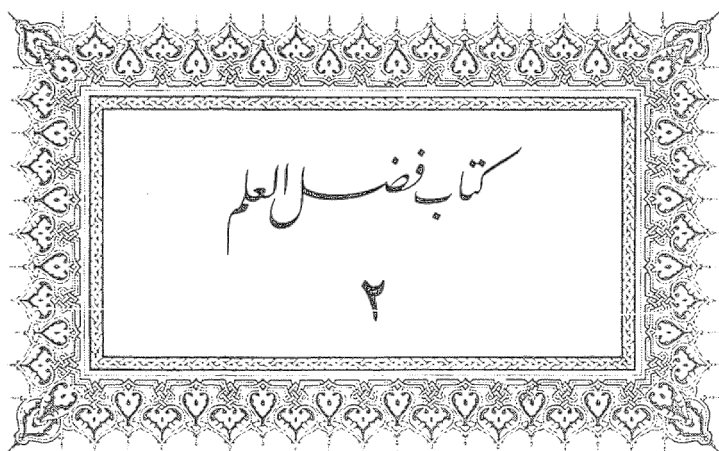 كتاب فضل العلم
٢